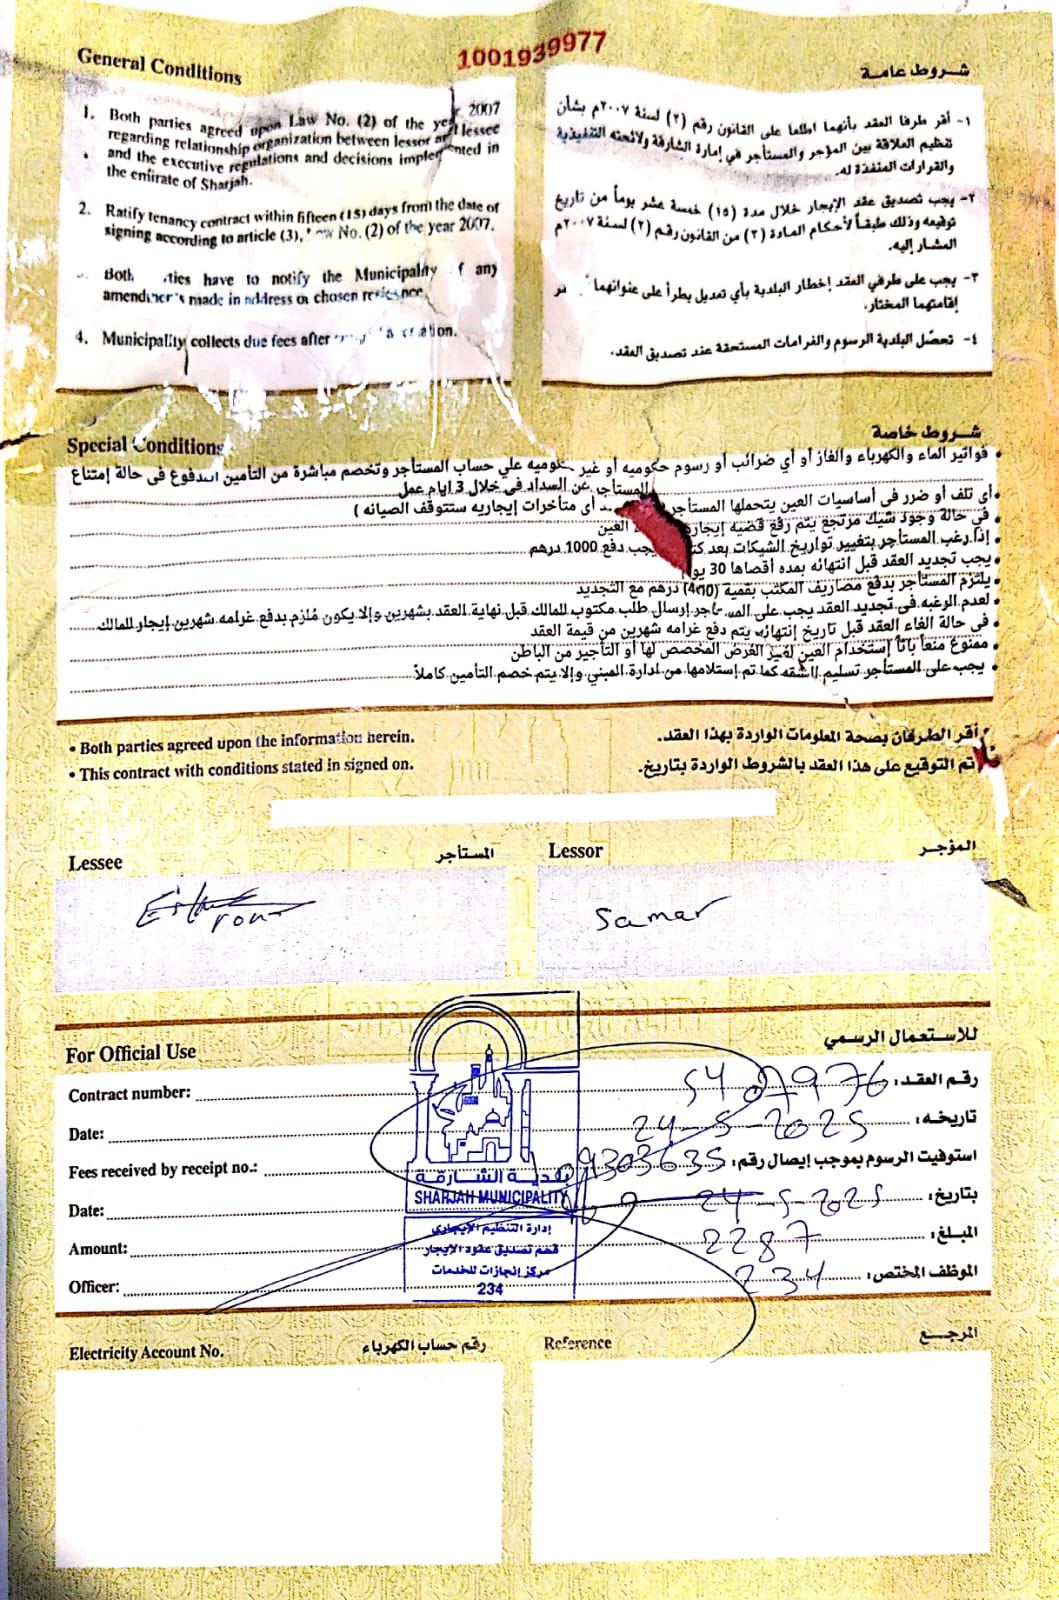 1001939977
General Conditions
شروط عامة
1. Both parties agreed upon Law No. (2) of the year 2007
regarding relationship organization between lessor and lessee
and the executive regulations and decisions implemented in
the emirate of Sharjah.
2. Ratify tenancy contract within fifteen (15) days from the date of
signing according to article (3), Law No. (2) of the year 2007.
Both parties have to notify the Municipality of any
amendments made in address or chosen residence
4. Municipality collects due fees after
١- أقر طرفا العقد بأنهما اطلعا على القانون رقم (٢) لسنة ٢٠٠٧م بشأن
تنظيم العلاقة بين المؤجر والمستأجر في إمارة الشارقة ولائحته التنفيذية
والقرارات المنفذة له.
٢- يجب تصديق عقد الإيجار خلال مدة (١٥) خمسة عشر يوماً من تاريخ
توقيعه وذلك طبقاً لأحكام المادة (٣) من القانون رقم (٢) لسنة ٢٠٠٧م
المشار إليه.
٣- يجب على طرفي العقد إخطار البلدية بأي تعديل يطرأ على عنوانهما أو مقر
إقامتهما المختار.
٤- تحصّل البلدية الرسوم والغرامات المستحقة عند تصديق العقد.
Special Conditions
شروط خاصة
• فواتير الماء والكهرباء والغاز أو أي ضرائب أو رسوم حكوميه أو غير حكوميه علي حساب المستأجر وتخصم مباشرة من التأمين المدفوع فى حالة إمتناع
المستأجر عن السداد فى خلال 3 ايام عمل
• أى تلف أو ضرر فى أساسيات العين يتحملها المستأجر أى متأخرات إيجاريه ستتوقف الصيانه )
• في حالة وجود شيك مرتجع يتم رفع قضيه إيجاريه العين
• إذا رغب المستأجر بتغيير تواريخ الشيكات بعد يجب دفع 1000 درهم
• يجب تجديد العقد قبل انتهائه بمده أقصاها 30 يوم
• يلتزم المستأجر بدفع مصاريف المكتب بقمية (400) درهم مع التجديد
• لعدم الرغبه فى تجديد العقد يجب على المستأجر إرسال طلب مكتوب للمالك قبل نهاية العقد بشهرين وإلا يكون مُلزم بدفع غرامه شهرين إيجار للمالك
• في حالة الغاء العقد قبل تاريخ إنتهائه يتم دفع غرامه شهرين من قيمة العقد
• ممنوع منعاً باتاً إستخدام العين لغير الغرض المخصص لها أو التأجير من الباطن
• يجب على المستأجر تسليم الشقه كما تم إستلامها من ادارة المبني وإلا يتم خصم التأمين كاملاً
• Both parties agreed upon the information herein.
• أقر الطرفان بصحة المعلومات الواردة بهذا العقد.
• This contract with conditions stated in signed on.
تم التوقيع على هذا العقد بالشروط الواردة بتاريخ.
Lessee
المستأجر
Lessor
المؤجر
Samar
For Official Use
للاستعمال الرسمي
Contract number: 5407976 رقم العقد:
Date: 24-5-2025 تاريخه:
Fees received by receipt no.: 09303635 استوفيت الرسوم بموجب إيصال رقم:
Date: 24-5-2025 بتاريخ:
Amount: 2287 المبلغ:
Officer: 234 الموظف المختص:
بلدية الشارقة
SHARJAH MUNICIPALITY
إدارة التنظيم الإيجاري
قسم تصديق عقود الإيجار
مركز إنجازات للخدمات
234
Electricity Account No.
رقم حساب الكهرباء
Reference
المرجع